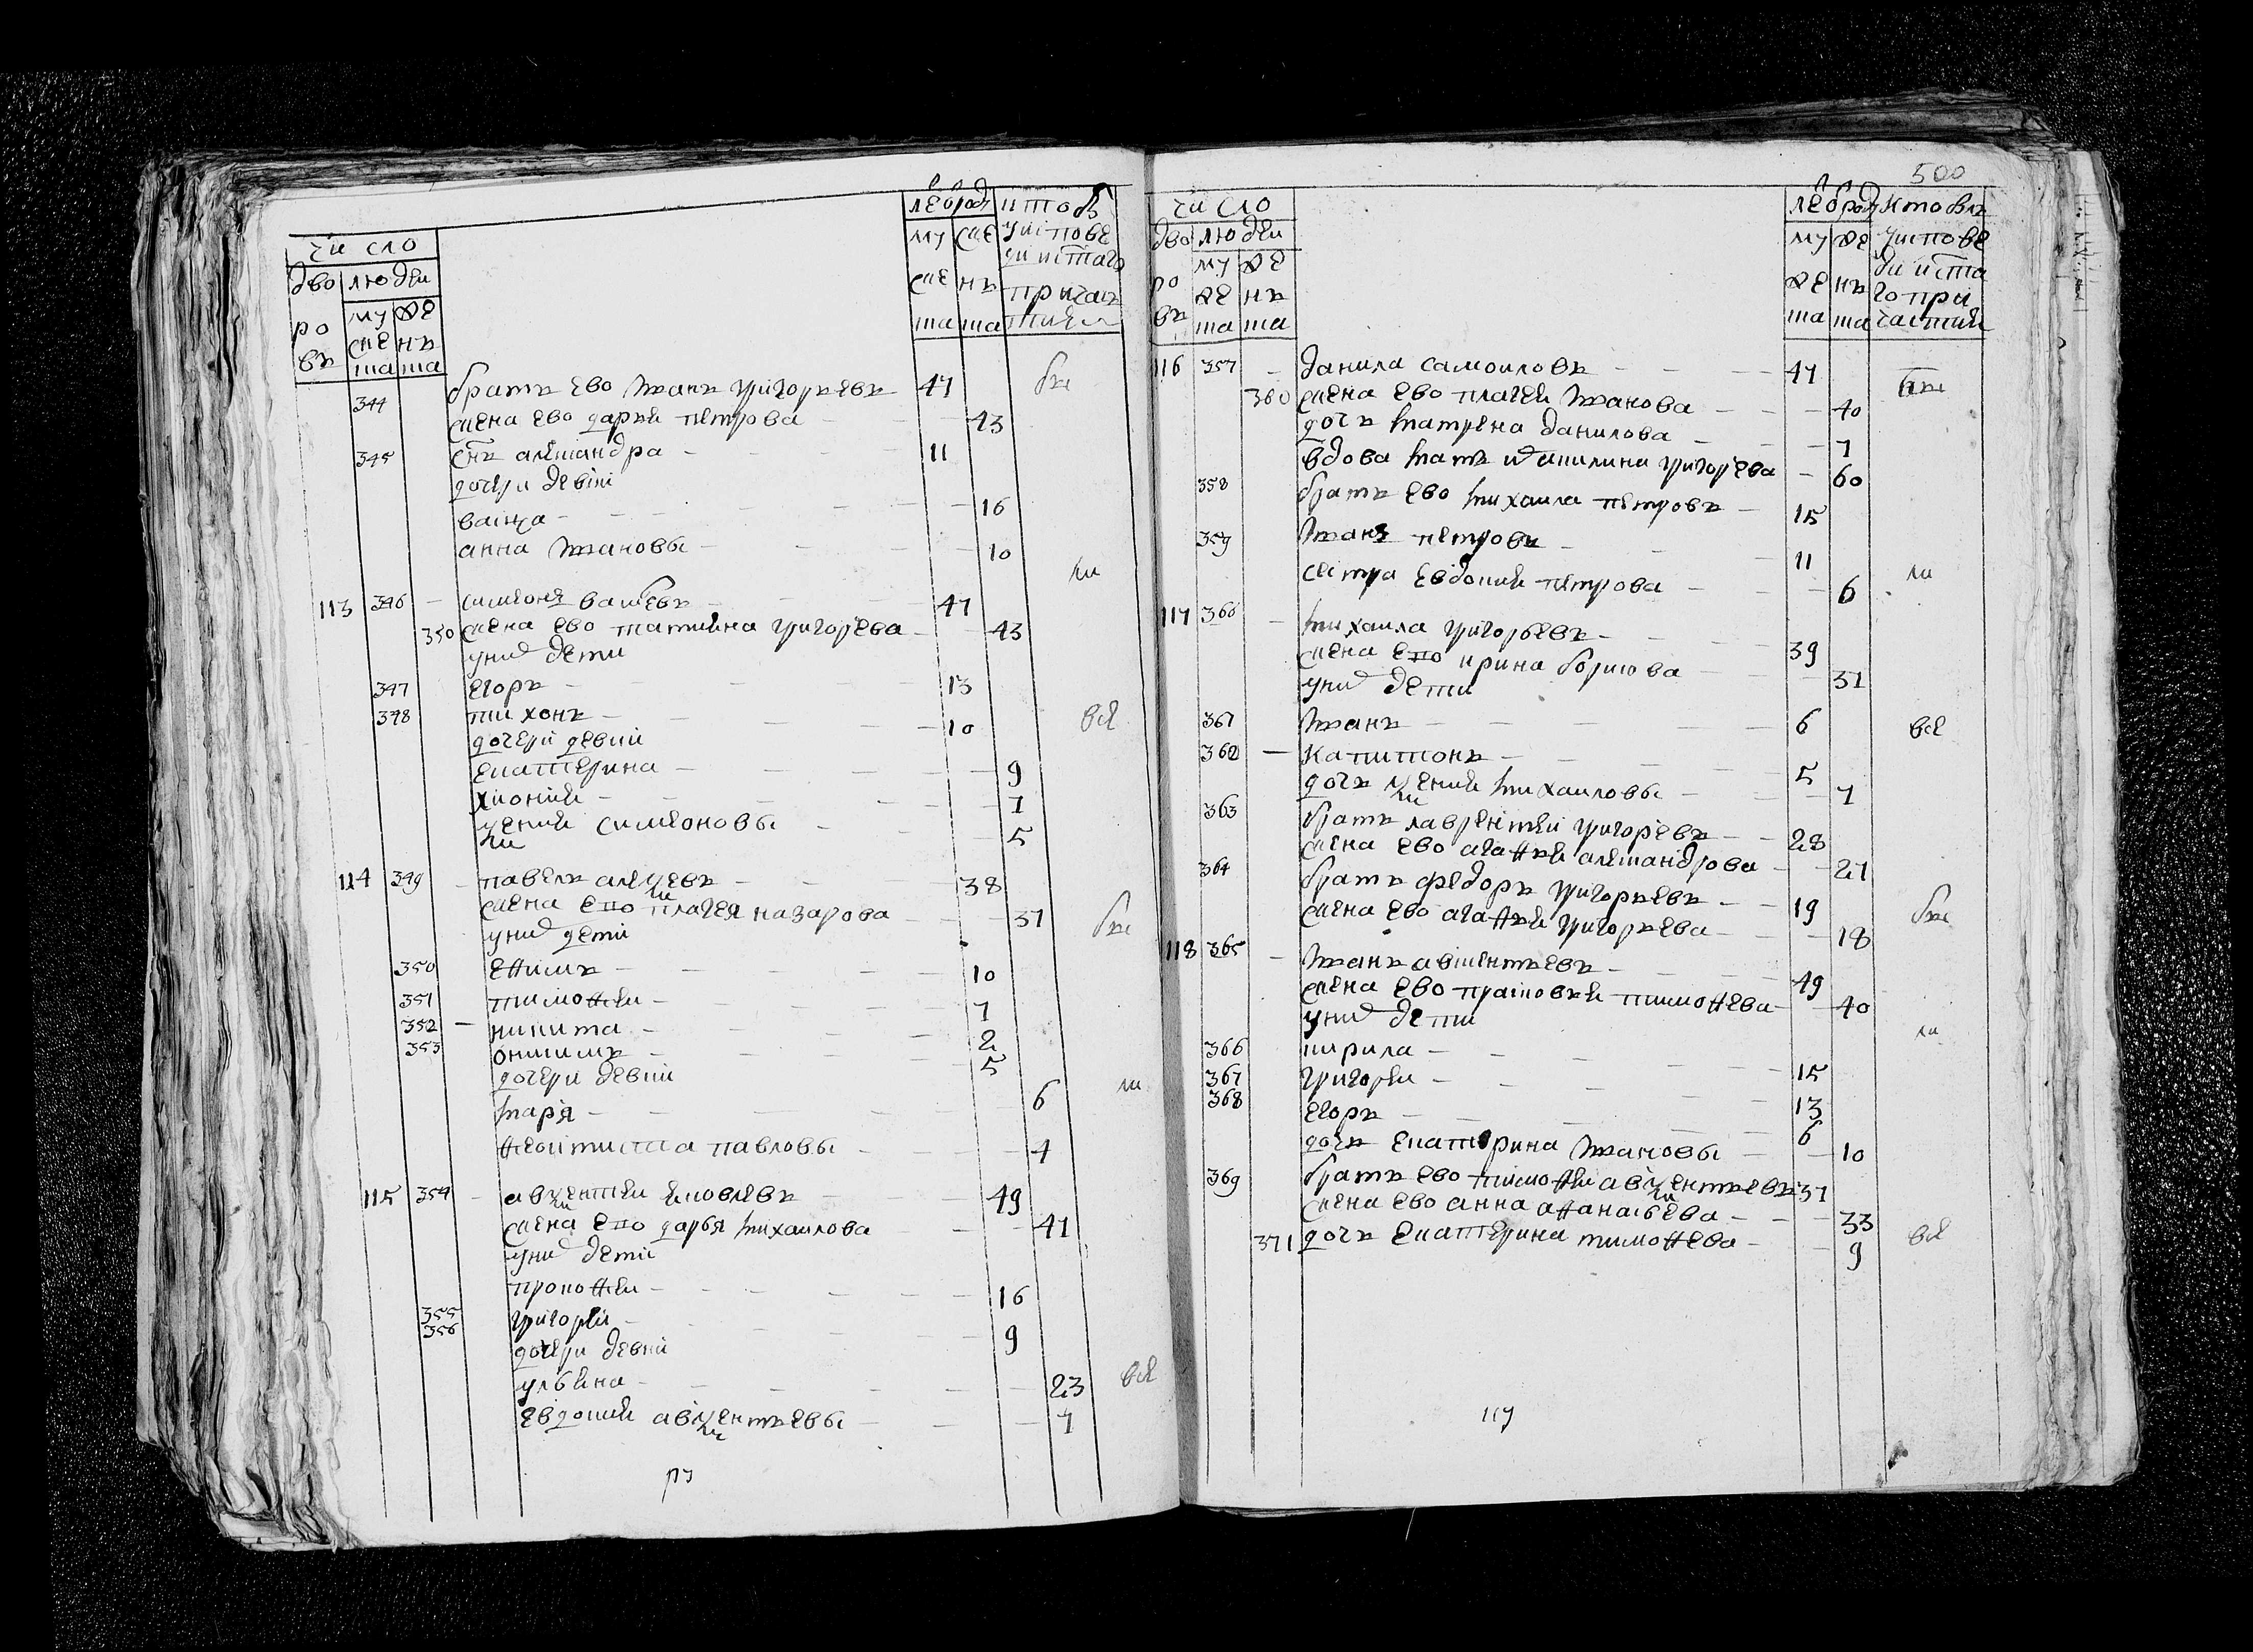 число
дворовъ
людеи
мужеска
женска
летъ от рода
мужеска
женска
344 братъ ево иванъ григорьевъ 47 бы
жена ево дарья петрова 43
345 снъ александра 11
дочери девки
васиса 16
анна ивановы 10
ли
113 346 симеонъ васиевъ 47
350 жена ево татияна григорьева 43
унихъ дети
347 егоръ 13
348 тихонъ 10 все
дочери девки
екатерина 9
хиония 7
ксения симеоновы 5
114 349 павелъ алексеевъ 38
жена ево пелагея назарова 37 бы
унихъ дети
350 ефимъ 10
351 тимофеи 7
352 никита 2
353 онисимъ 5
дочери девки
марья 6 ли
феоктиста павловы 4
115 354 авксентеи яковлевъ 49
жена ево дарья михаилова 47
унихъ дети
прокофеи 16
355
356 григореи 9
дочери девки
ульяна 23 все
евдокия авксентьевы 7
500
число
дворовъ
людеи
мужеска
женска
летъ от рода
мужеска
женска
кто былъ у исповеди и стаго причастия
116 357 данила самоиловъ 47 бы
360 жена ево пелагея иванова 40
дочь матрена данилова 7
вдова мать данилина григорьева 60
358 братъ ево михаила петровъ 15
359 иванъ петровъ 11
сестра евдокия петрова 6 ли
117 360 михаила григорьевъ 39
жена ево ирина борисова 37
унихъ дети
361 иванъ 6 все
362 капитонъ 5
дочь ксения михаиловы 7
363 братъ лаврентеи григорьевъ 28
жена ево агафья александрова 27
364 братъ федоръ григорьевъ 19 бы
жена ево агафья григорьева 18
118 365 иванъ авксентьевъ 49
жена ево прасковья тимофева 40
унихъ дети ли
366 кирила 15
367 григореи 13
368 егоръ 6
дочь екатерина ивановы 10
369 братъ ево тимофеи авксентьевъ 37
жена ево анна афанасьева 33
371 дочь екатерина тимофева 9 все
119